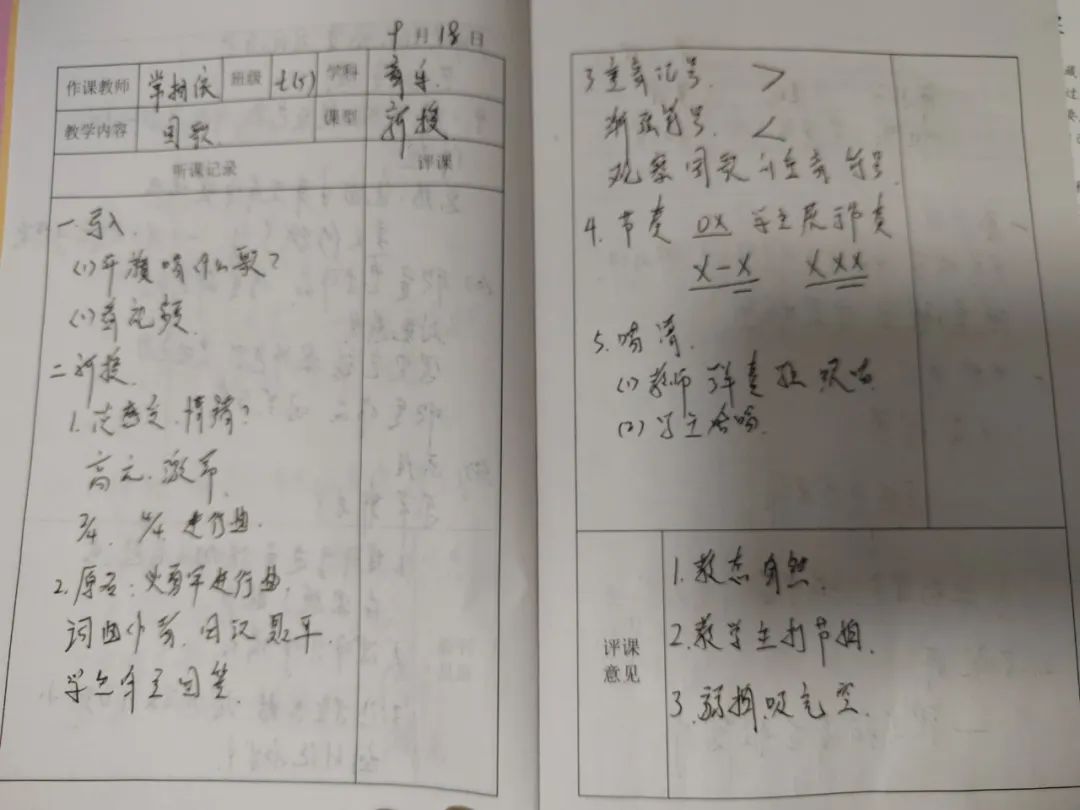 9月18日
作课教师 班级 七(5) 学科 音乐
教学内容 国歌 课型 新授
听课记录 评课
一.导入
(1)升旗唱什么歌?
(1)看视频
二.新授
1.情绪?
高亢.激昂
2/4. 4/4. 进行曲.
2.原名:义勇军进行曲.
词曲作者.田汉 聂耳
学生自主回答
3重音记号. >
渐强符号. <
观察国歌的重音符号.
4.节奏 0X 学生展示节奏
X-X XXX
5.唱
(1)教师弹奏
(2)学生合唱.
评课意见
1.教态自然.
2.教学生打节拍.
3.弱拍.吸气